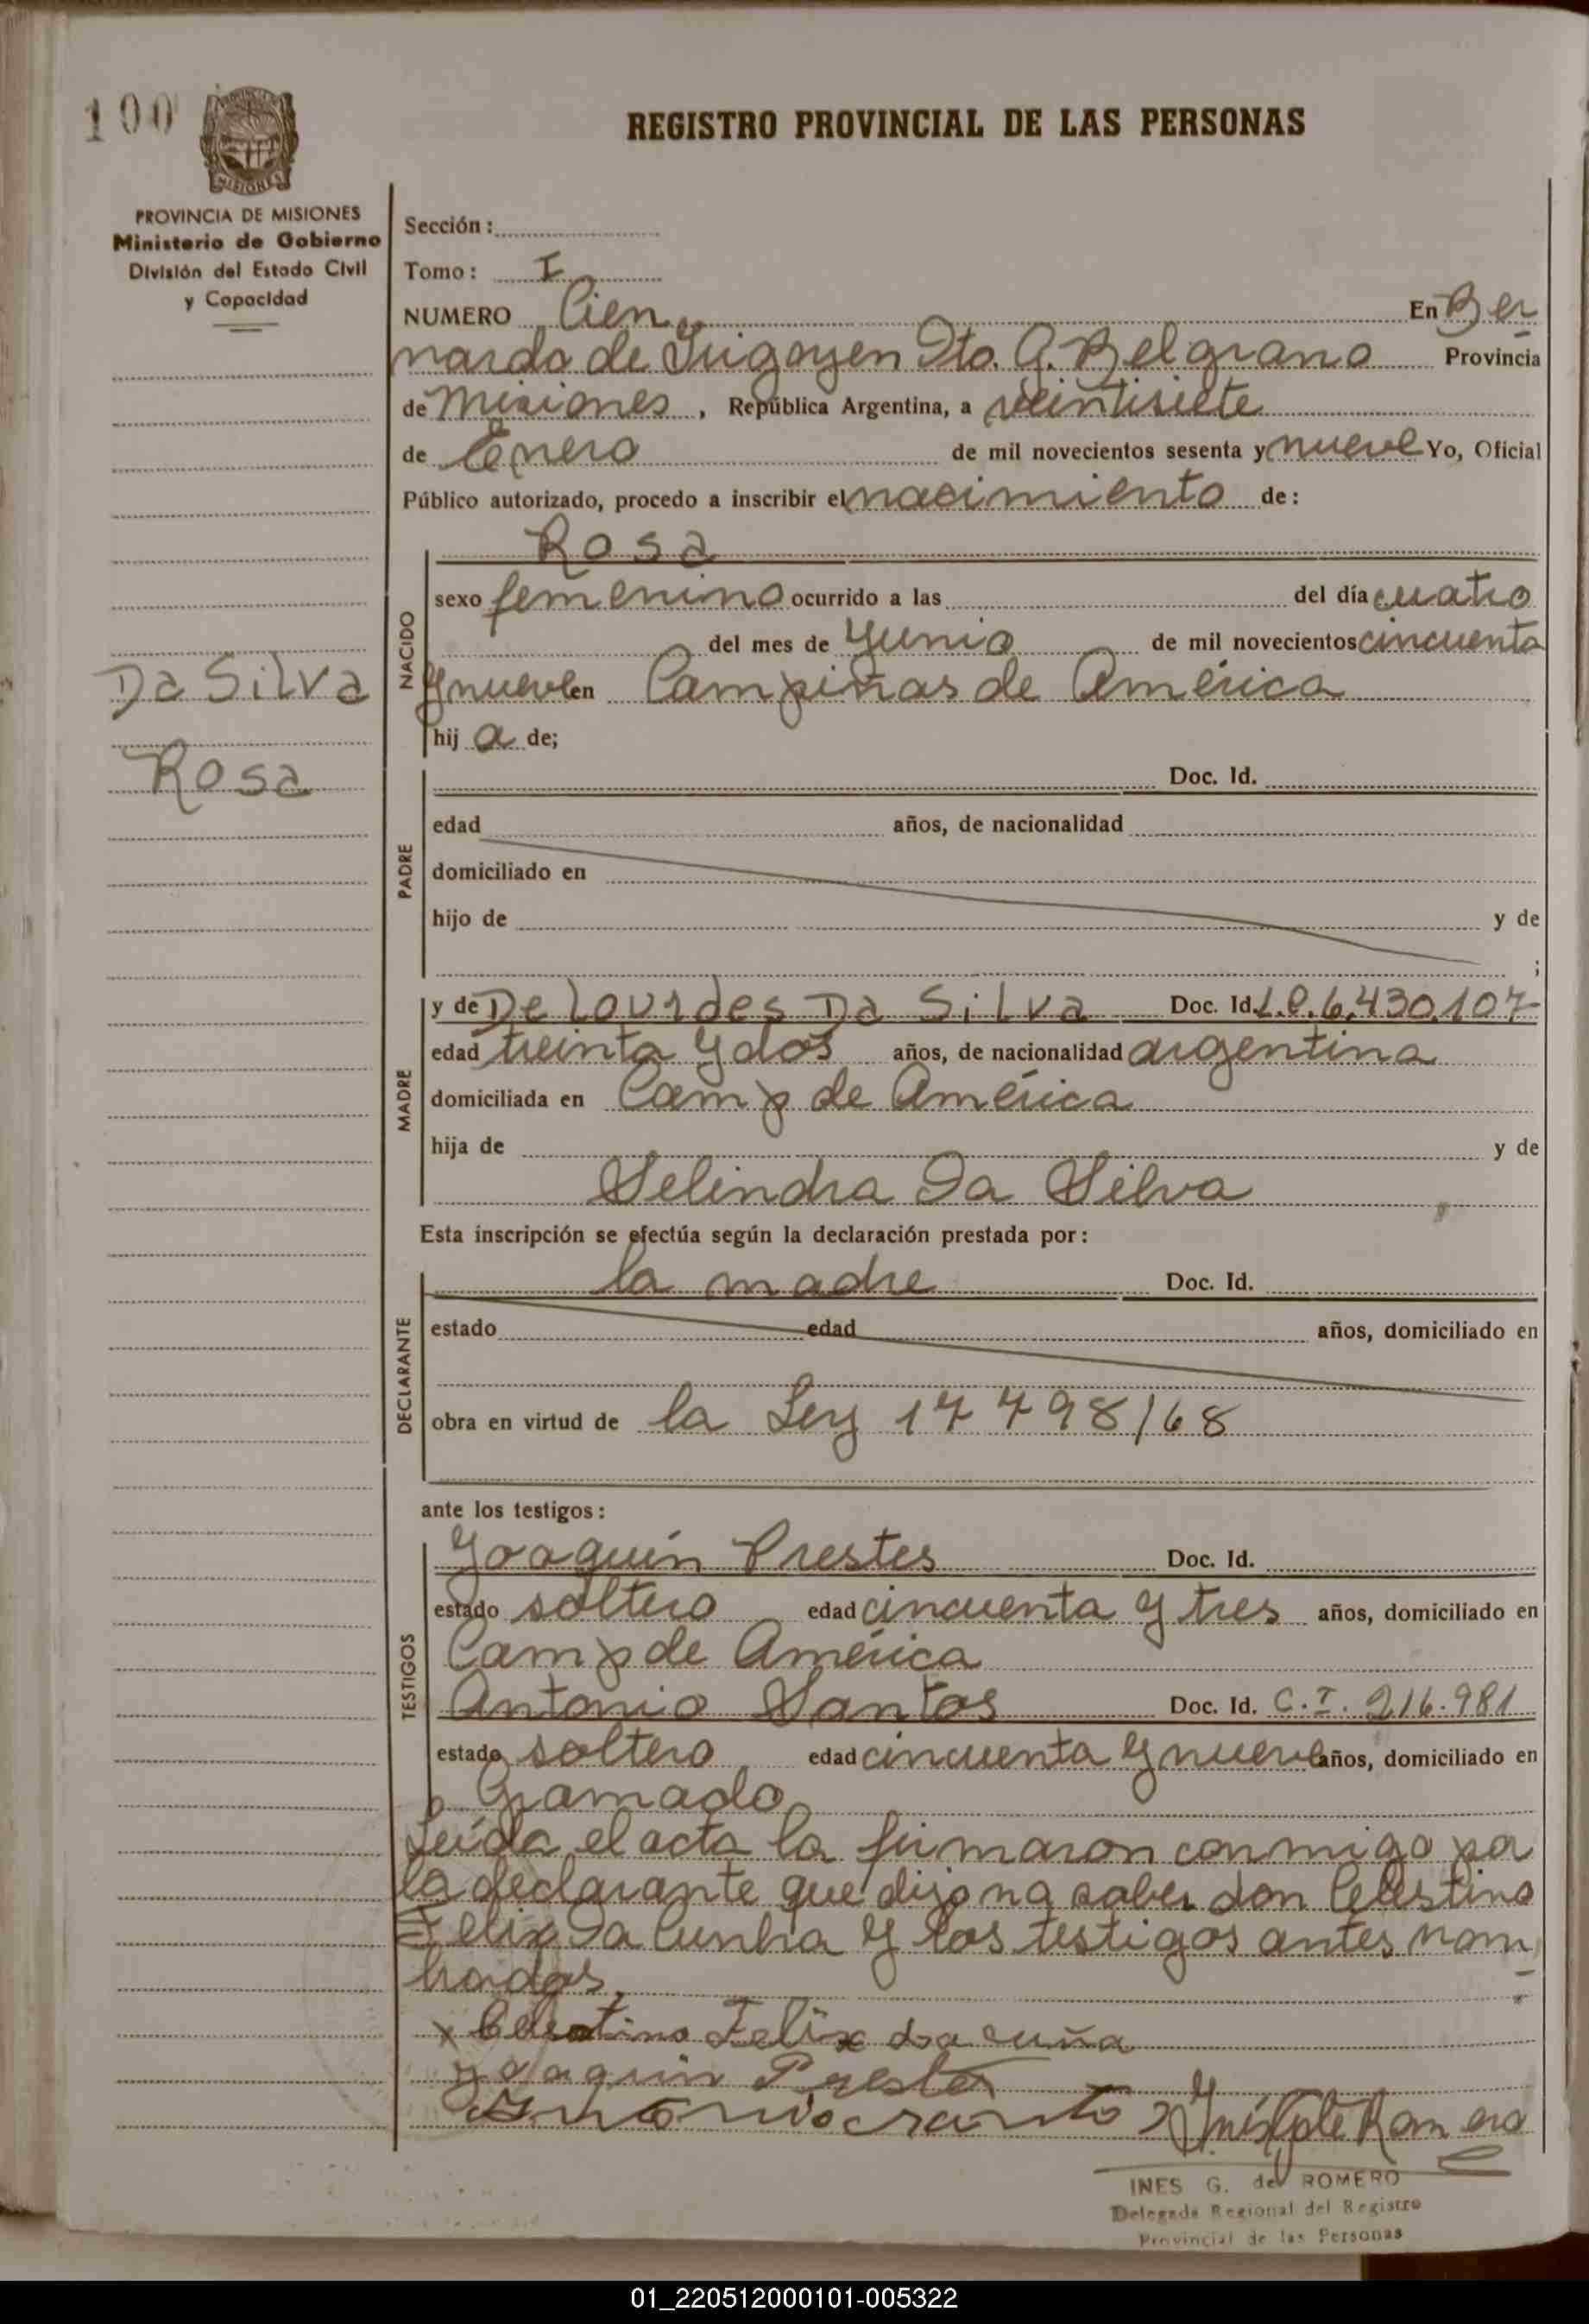 100
MISIONES
PROVINCIA DE MISIONES
Ministerio de Gobierno
División del Estado Civil
y Capacidad
Da Silva
Rosa
REGISTRO PROVINCIAL DE LAS PERSONAS
Sección:
Tomo: I
NUMERO Cien En Ber
nardo de Irigoyen Dto. G. Belgrano Provincia
de Misiones, República Argentina, a veintisiete
de Enero de mil novecientos sesenta y nueve Yo, Oficial
Público autorizado, procedo a inscribir el nacimiento de:
NACIDO
Rosa
sexo femenino ocurrido a las del día cuatro
del mes de Yunio de mil novecientos cincuenta
y nueve en Campiñas de América
hij a de;
PADRE
Doc. Id.
edad años, de nacionalidad
domiciliado en
hijo de y de
;
MADRE
y de De Lourdes Da Silva Doc. Id. L.C. 6.430.107
edad treinta y dos años, de nacionalidad argentina
domiciliada en Camp de América
hija de y de
Selindra Da Silva
Esta inscripción se efectúa según la declaración prestada por:
DECLARANTE
la madre Doc. Id.
estado edad años, domiciliado en
obra en virtud de la Ley 17798/68
ante los testigos:
TESTIGOS
Yoaquín Prestes Doc. Id.
estado soltero edad cincuenta y tres años, domiciliado en
Camp de América
Antonio Santos Doc. Id. C.I. 216.981
estado soltero edad cincuenta y nueve años, domiciliado en
Gramado
Leída el acta la firmaron conmigo por
la declarante que dijo no saber don Celestino
Felix Da Cunha y los testigos antes nom
brados
x Celestino Felix da cuña
yoaquin Prestes
Antonio
INES G. de ROMERO
Delegada Regional del Registro
Provincial de las Personas
01_220512000101-005322